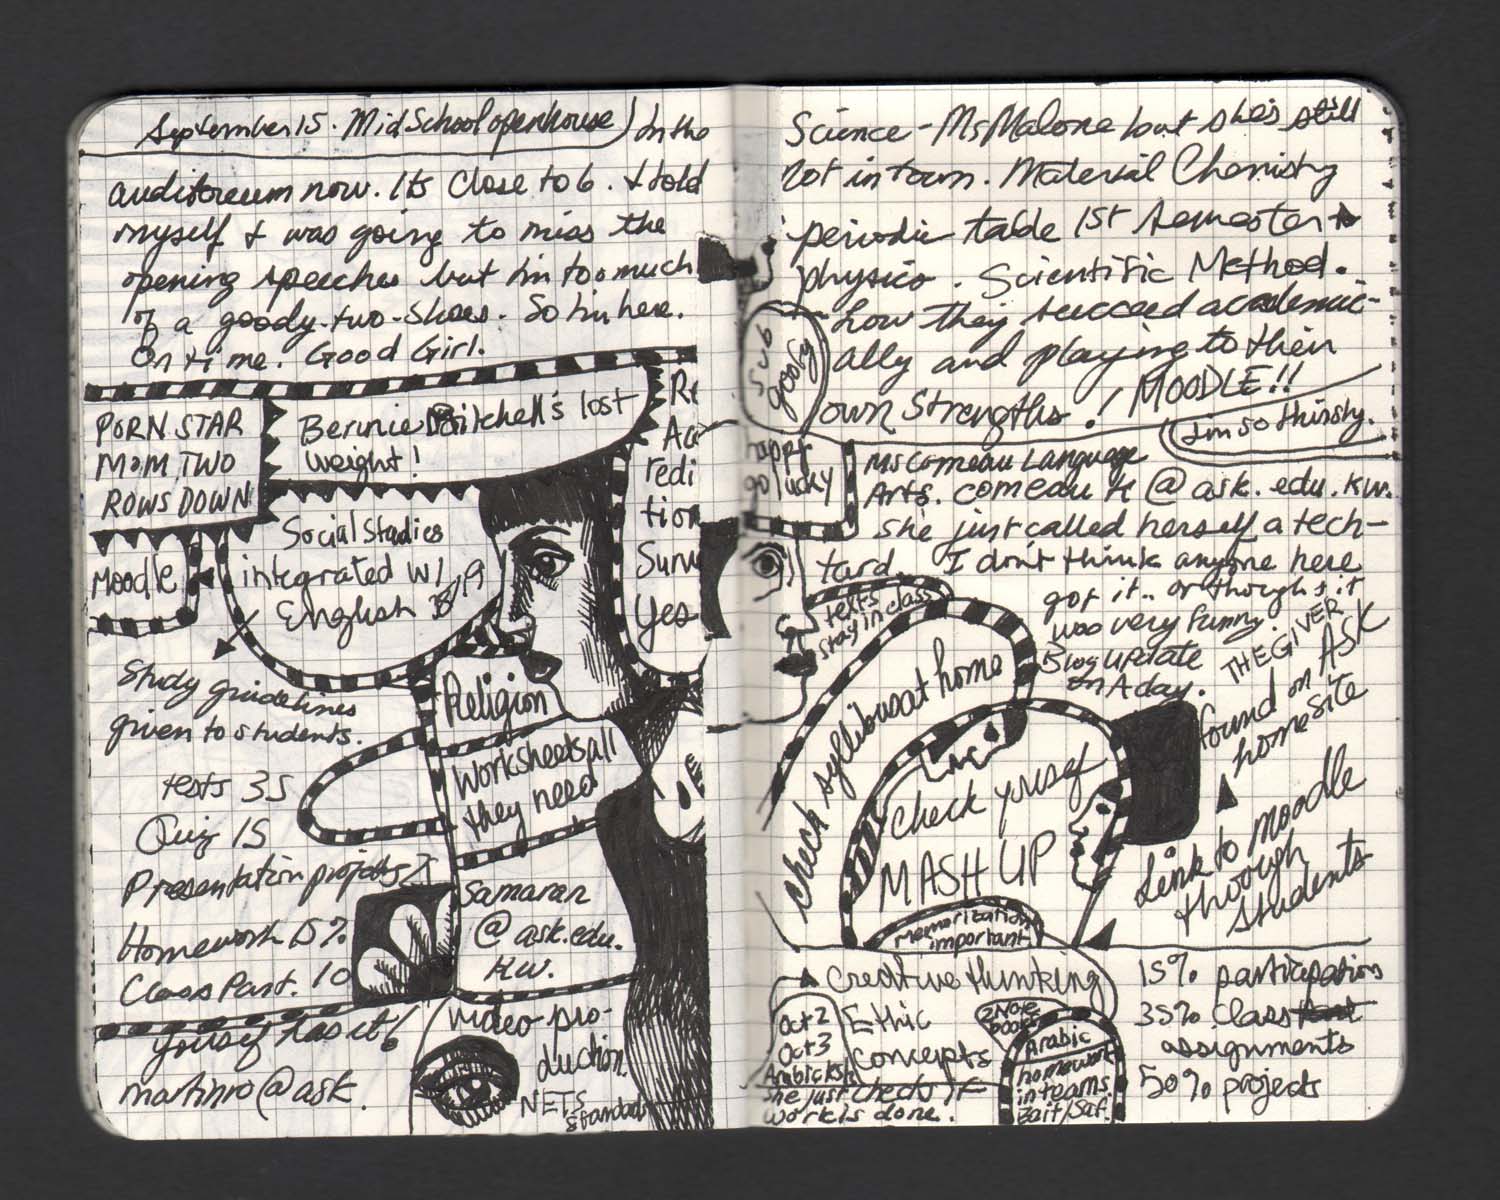 September 15. Mid School openhouse) In the
auditoreum now. Its close to 6. I told
myself I was going to miss the
opening speeches but I'm too much
of a goody-two-shoes. So I'm here.
On time. Good Girl.
PORN STAR
MOM TWO
ROWS DOWN
Bernie Mitchell's lost
weight!
Re
Ac
redi
tion
Surv
Yes
Moodle
Social Studies
integrated w/
English
Study guidelines
given to students.
tests 35
Quiz 15
Presentation projects
Homework 15%
Class Part. 10
yousef has it!
martinro@ask.
Religion
Worksheets all
they need
Samaran
@ask.edu.
kw.
video pro-
duction.
NETS
standards
Science - Ms Malone but she's still
not in town. Material Chemistry
periodic table 1st semester
physics. Scientific Method.
how they succeed academic-
ally and playing to their
own strengths! MOODLE!!
I'm so thirsty.
sub
groovy
happy
go lucky
Ms Comeau Language
Arts. comeau k@ask.edu.kw.
She just called herself a tech-
tard. I don't think anyone here
got it.. or though it
was very funny.
Blog update
on A day.
THE GIVER
found on ASK
home site
texts
stay in class
check syllibus at home
check yousef
MASH UP
Memorization
important
Link to moodle
through
students
Creative thinking
Ethic
concepts
Oct 2
Oct 3
Arabic ksh
she just checks if
work is done.
2 Note
books
Arabic
homework
in teams.
Bait/Saf.
15% participation
35% class
assignments
50% projects